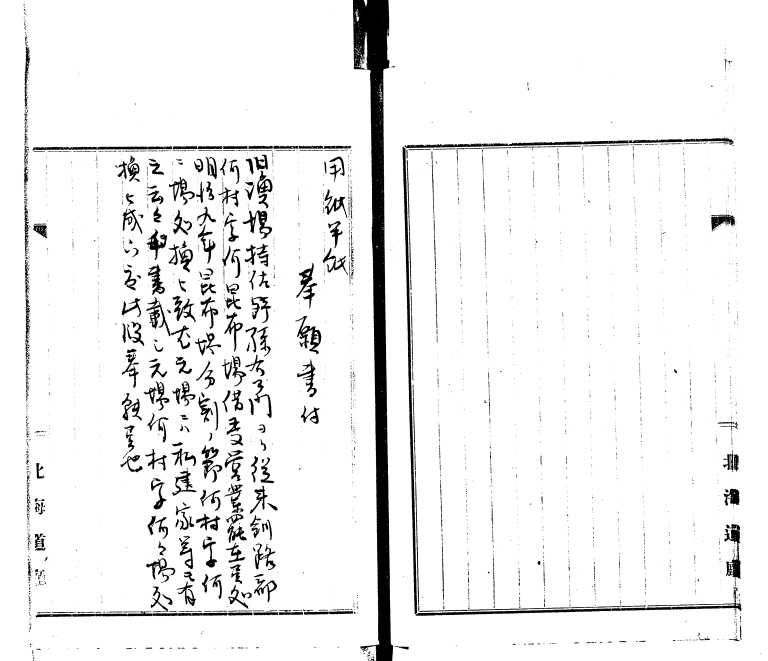 用紙半紙
奉願書付
旧漁場持佐野孫右衛門ヨリ従来釧路郡
何村字何昆布場借受営業罷在候処
明治九年昆布場分割ノ節何村字何
場処換ニ致
元場ニハ私建家等モ有
之云々
書載之元場何村字何々場処
換ニ成
度此段奉願候也
北海道廳
北海道廳